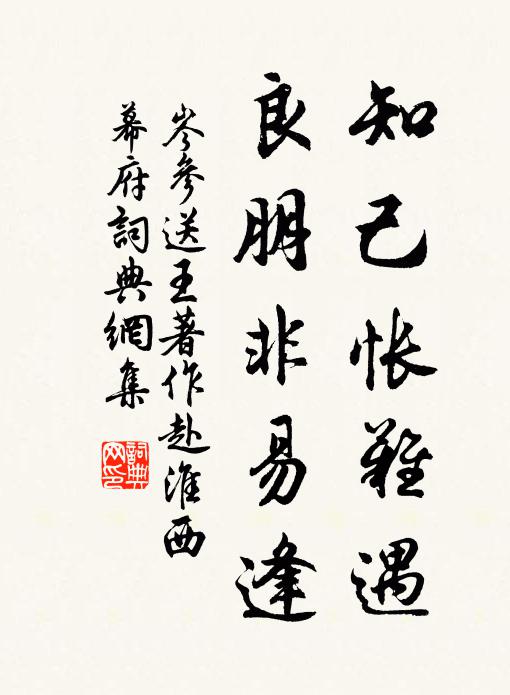 知己悵難遇
良朋非易逢
岑參送王著作赴淮西
幕府詞典網集
詞典
网印